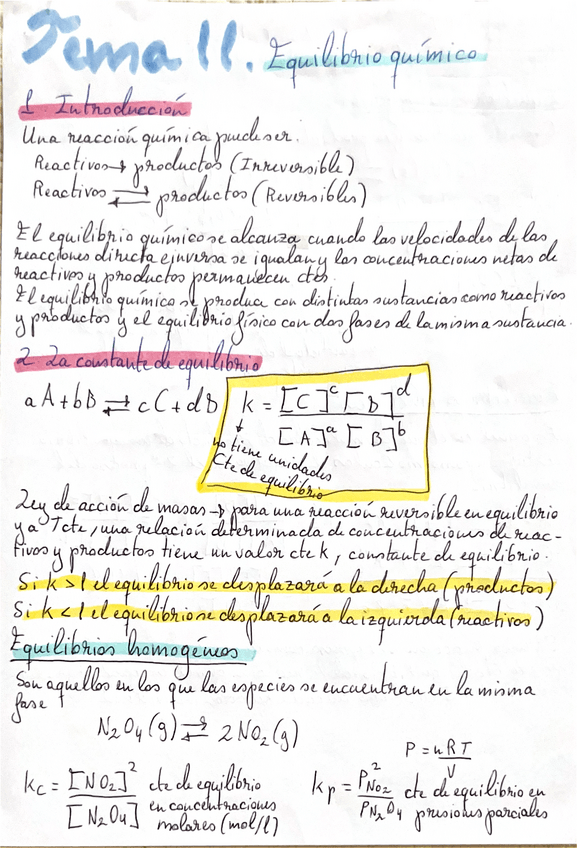 Tema 11. Equilibrio químico
1. Introducción
Una reacción química puede ser:
Reactivos → productos (Irreversible)
Reactivos ⇄ productos (Reversibles)
El equilibrio químico se alcanza cuando las velocidades de las
reacciones directa e inversa se igualan y las concentraciones netas de
reactivos y productos permanecen ctes.
El equilibrio químico se produce con distintas sustancias como reactivos
y productos y el equilibrio físico con dos fases de la misma sustancia.
2 La constante de equilibrio
aA + bB ⇄ cC + dD k = [C]^c [D]^d / [A]^a [B]^b
↓
no tiene unidades
Cte de equilibrio
Ley de acción de masas → para una reacción reversible en equilibrio
y a T cte, una relación determinada de concentraciones de reac-
tivos y productos tiene un valor cte k, constante de equilibrio.
Si k > 1 el equilibrio se desplazará a la derecha (productos)
Si k < 1 el equilibrio se desplazará a la izquierda (reactivos)
Equilibrios homogéneos
Son aquellos en los que las especies se encuentran en la misma
fase
N2O4 (g) ⇄ 2 NO2 (g)
P = nRT / V
kc = [NO2]² / [N2O4] cte de equilibrio
en concentraciones
molares (mol/l)
kp = P²NO2 / PN2O4 cte de equilibrio en
presiones parciales